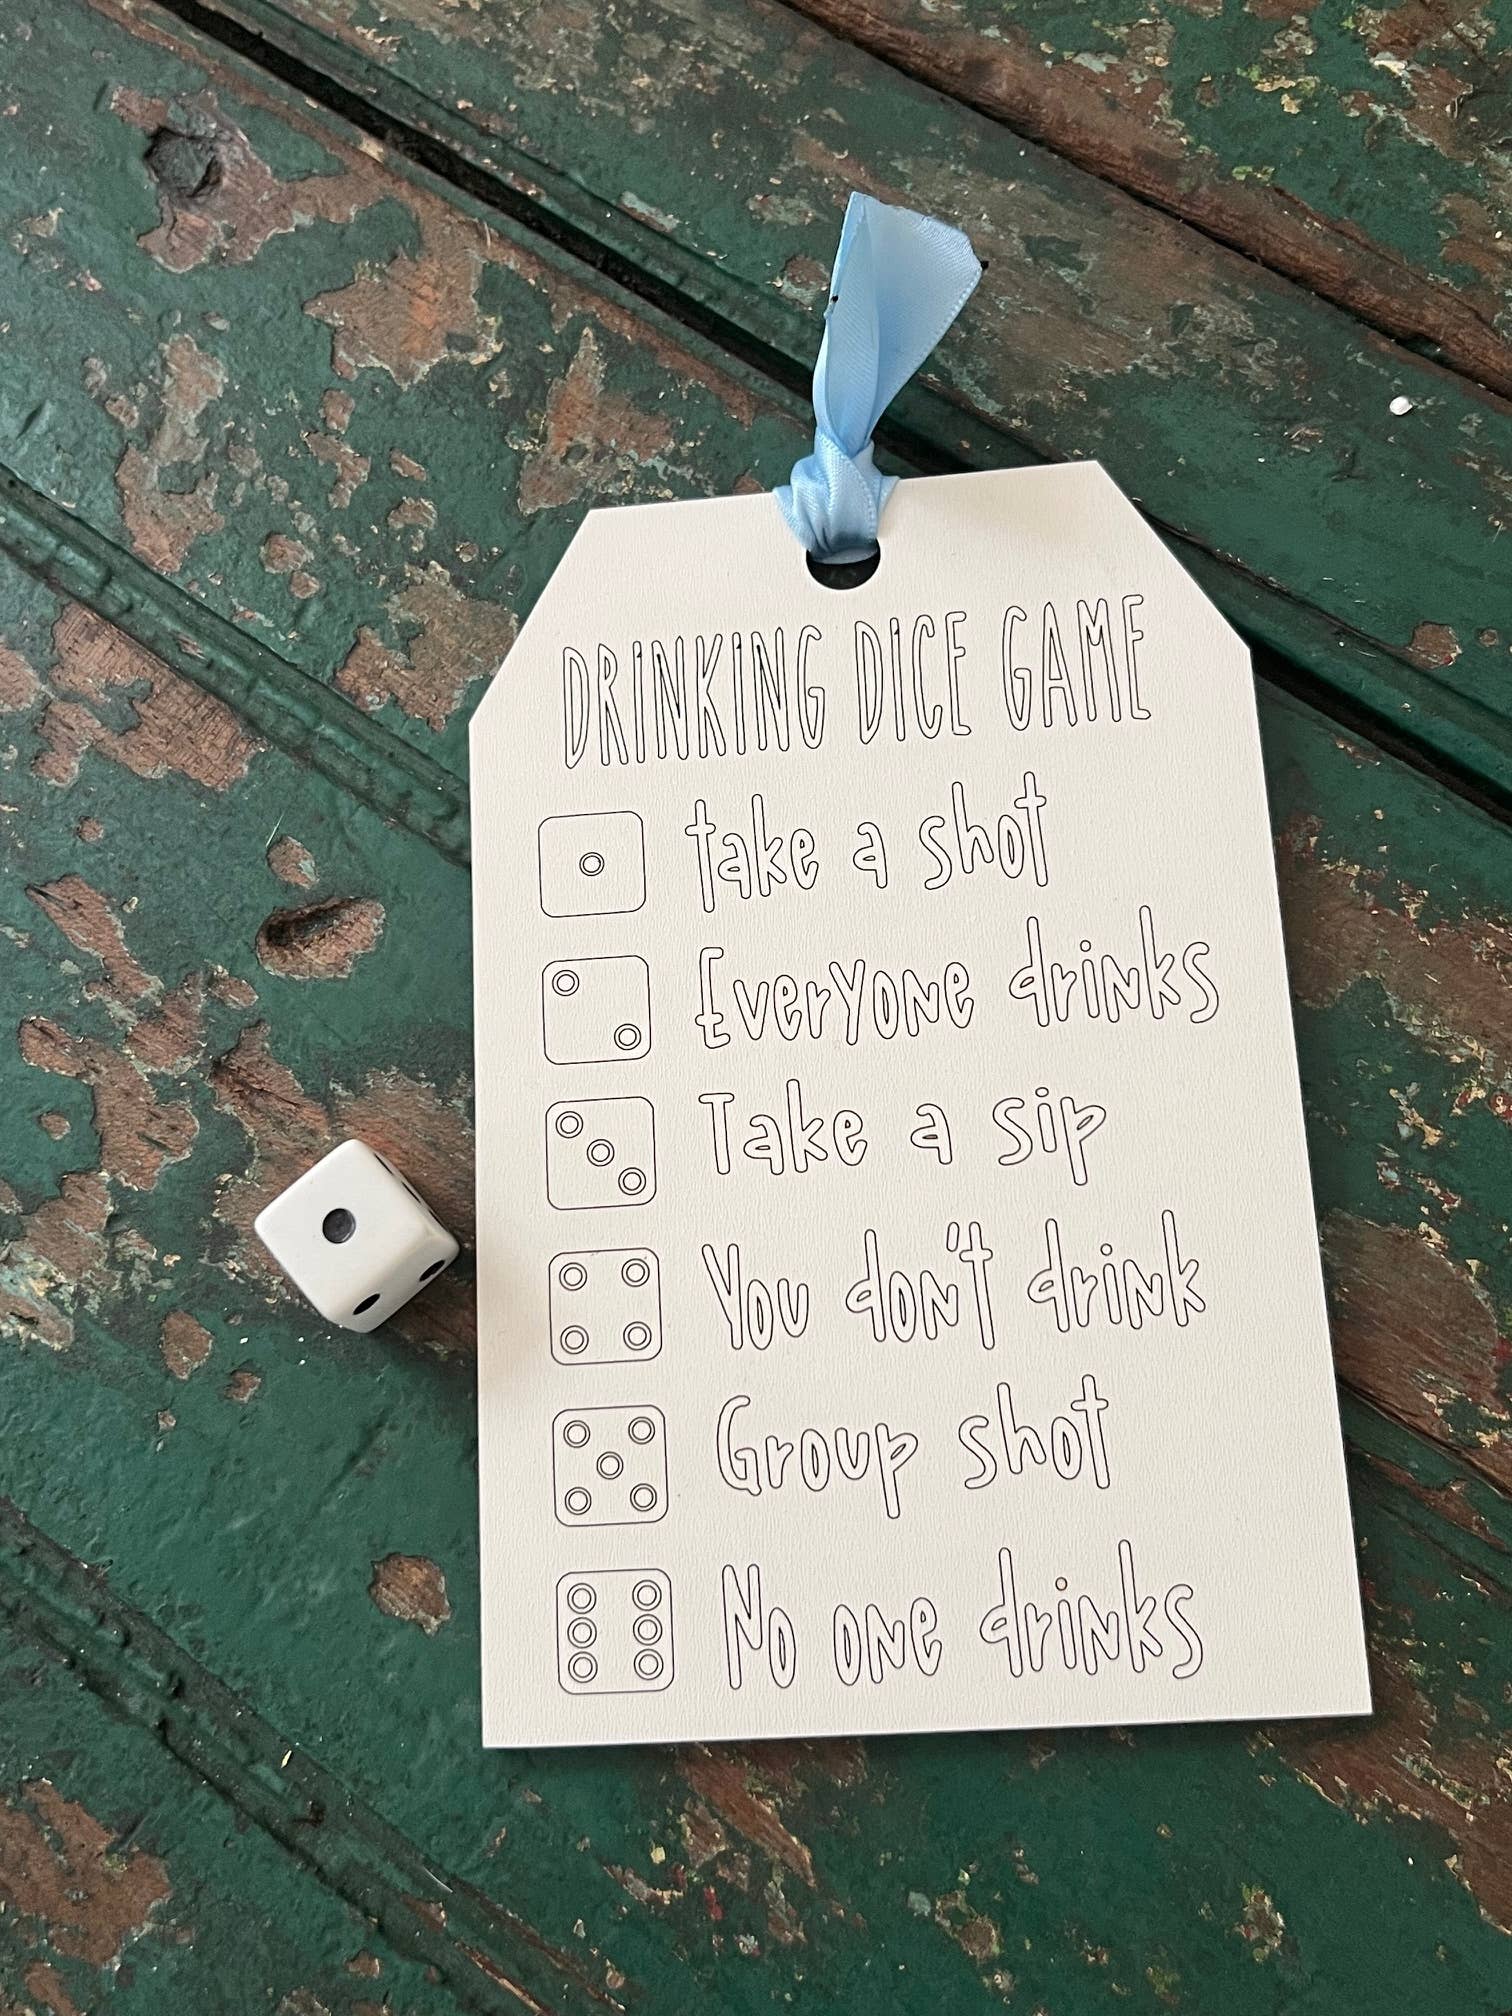 DRINKING DICE GAME
take a shot
Everyone drinks
Take a sip
You don't drink
Group shot
No one drinks